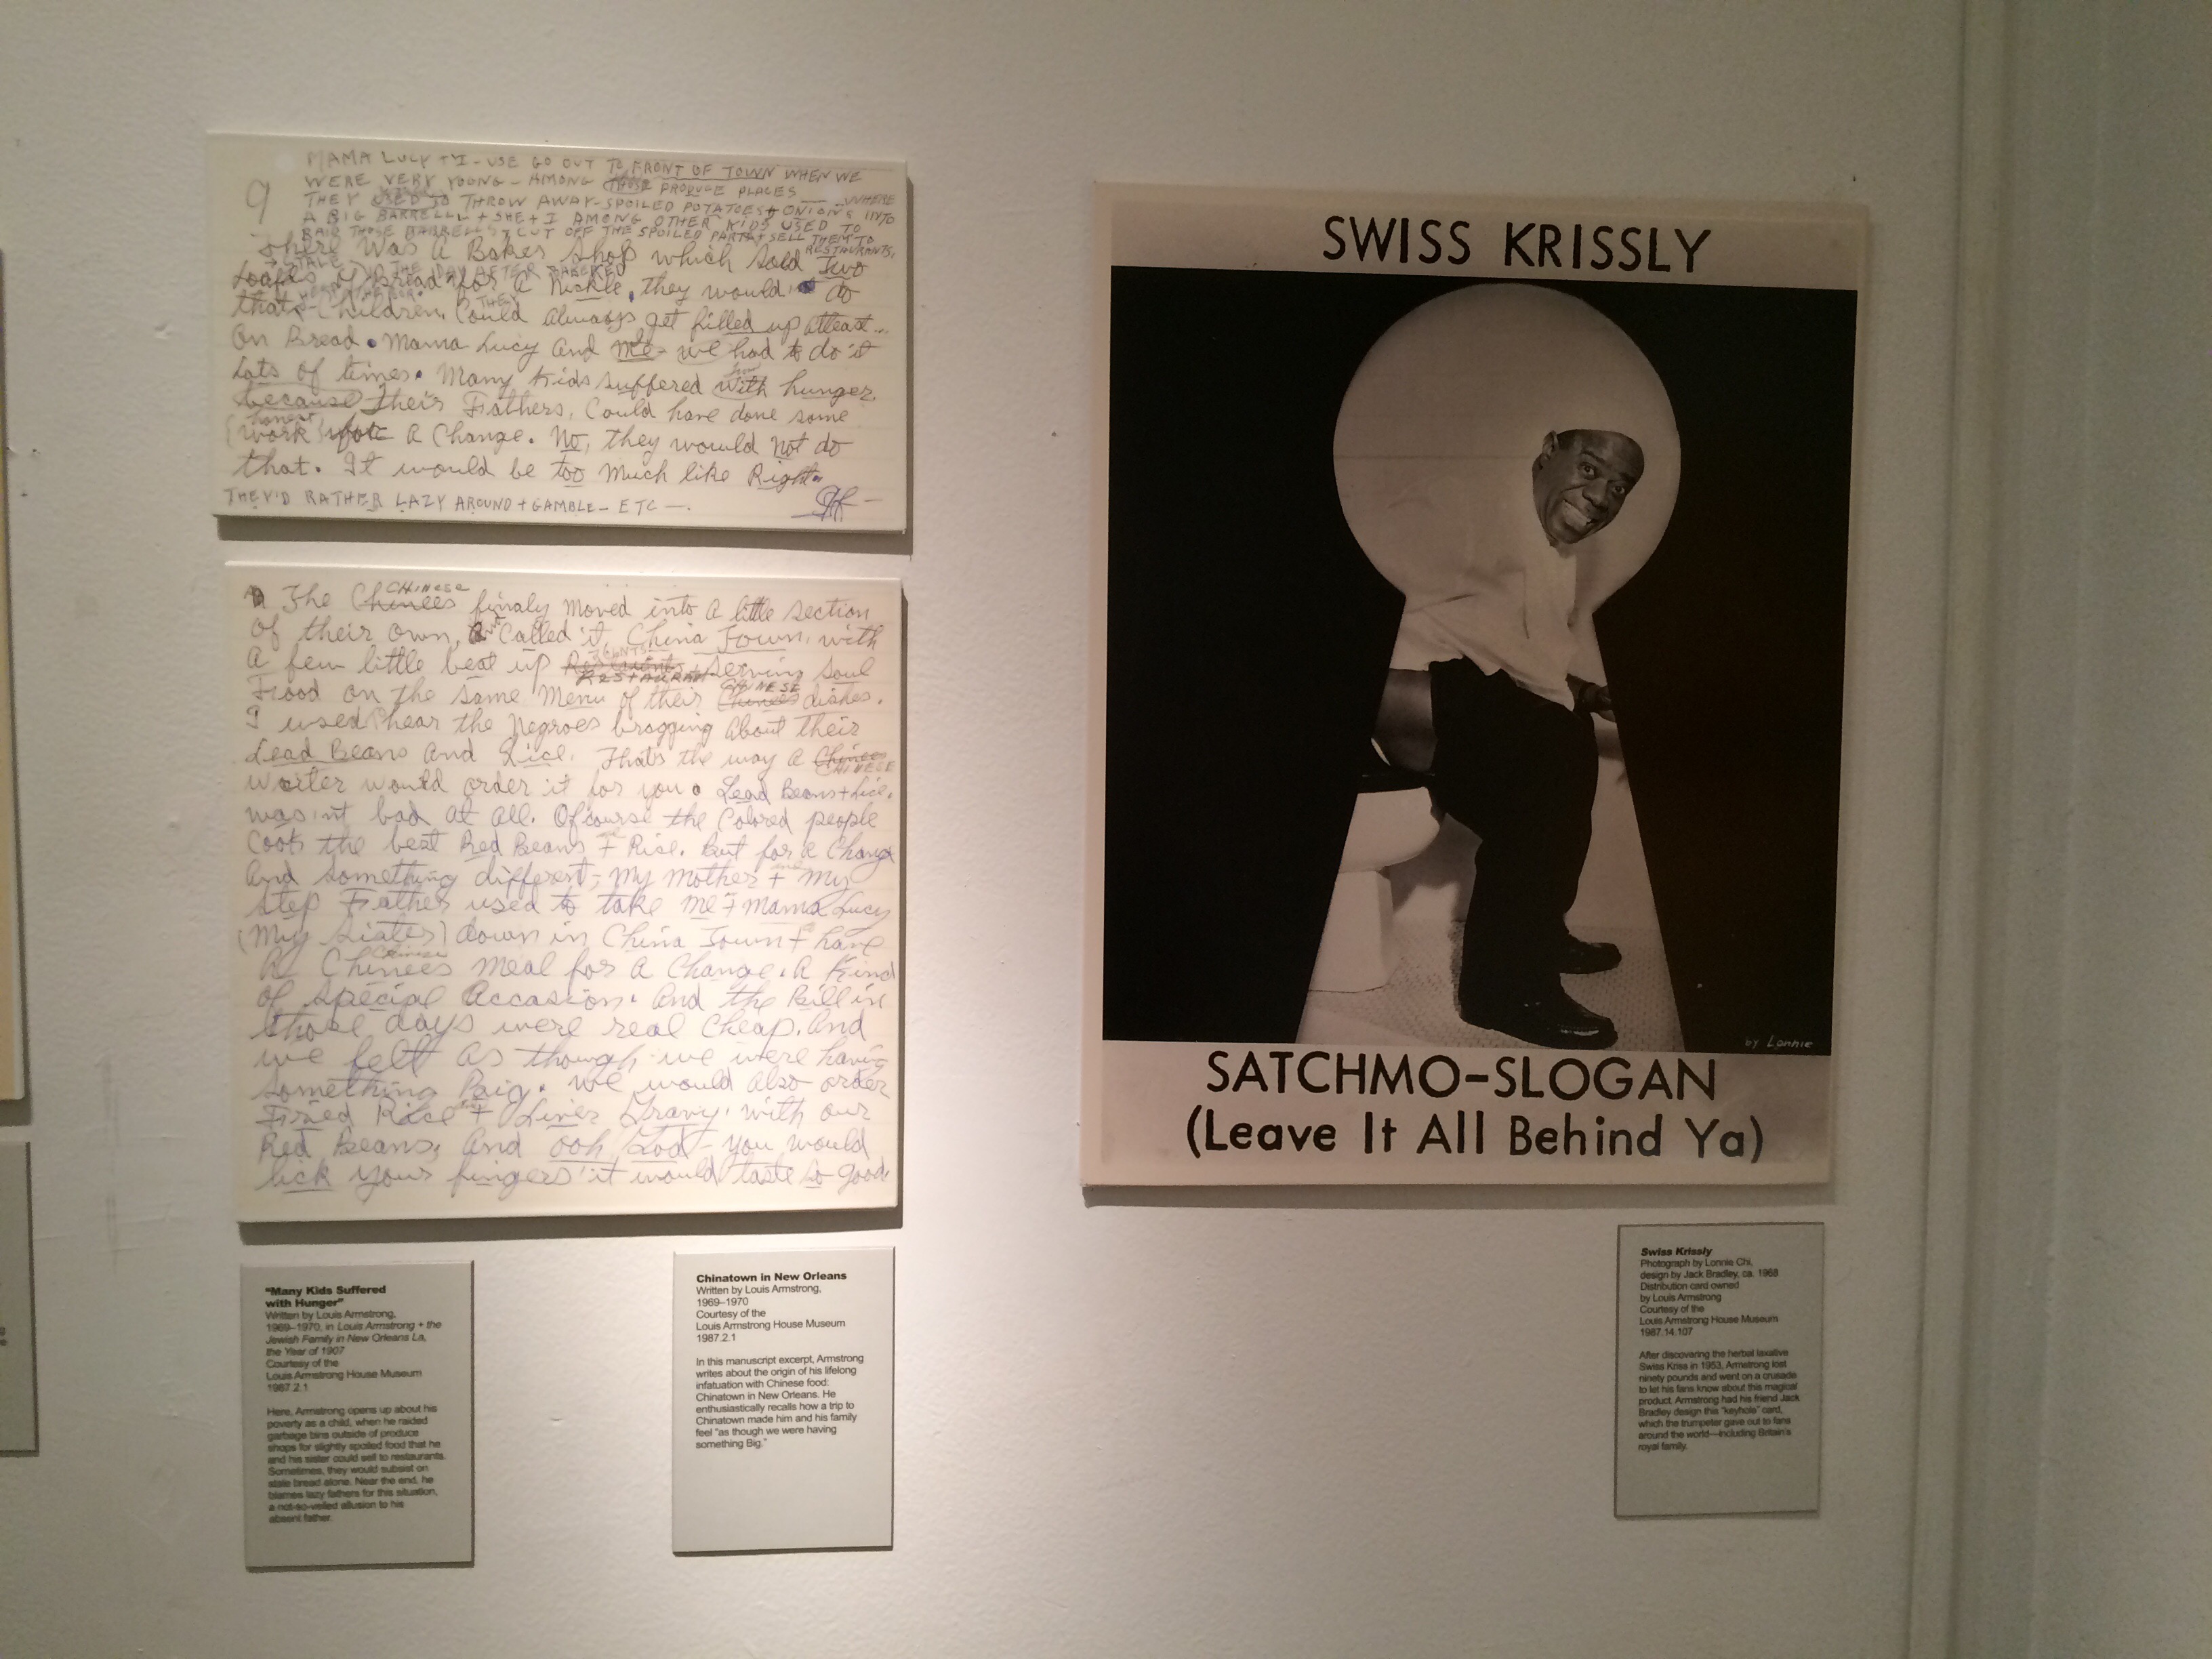 MAMA LUCY + I - USE GO OUT TO FRONT OF TOWN WHEN WE
9 WERE VERY YOUNG - AMONG THOSE PRODUCE PLACES - WHERE
THEY USED TO THROW AWAY - SPOILED POTATOES + ONIONS INTO
A BIG BARRELL + SHE + I AMONG OTHER KIDS USED TO
RAIR THOSE BARRELS + CUT OFF THE SPOILED PARTS + SELL THEM TO
RESTAURANTS.
There was A Baker Shop which sold Two
STALE THE DAY AFTER
Loafes of Bread for A Nickle, they would do
that Children THEY Could always get filled up atleast...
On Bread. Mama Lucy And Me - we had to do it
Lots of times. Many Kids suffered with hunger
because Their Fathers, Could have done some
honest
work for A Change. No, they would not do
that. It would be too Much like Right.
THEY'D RATHER LAZY AROUND + GAMBLE - ETC -.
CHINESE
The Chinees finaly Moved into A little section
Of their own, And Called it, China Town, with
A few little beat up RESTAURANTS serving Soul
CHINESE
Food on the same Menu of their Chinees dishes.
I used hear the Negroes bragging About their
Lead Beans And Lice. That's the way A Chinees
CHINESE
Waiter would order it for you. Lead Beans + Lice.
was int bad At All. Ofcourse the Colored people
Cook the best Red Beans + Rice. But for A Change
And something different, My Mother + My
Step Father used to take Me + Mama Lucy
(My Sister) down in China Town + have
Chinese
A Chinees Meal for A Change. A Kind
of special Accasion. And the Bill in
those days were real Cheap. And
we felt As though we were having
something Big. We would Also order
Fried Rice + Liver Gravy, with our
Red Beans. And ooh God - you would
lick your fingers it would taste so good.
SWISS KRISSLY
by Lonnie
SATCHMO-SLOGAN
(Leave It All Behind Ya)
"Many Kids Suffered
with Hunger"
Written by Louis Armstrong,
1969–1970, in Louis Armstrong + the
Jewish Family in New Orleans La,
the Year of 1907
Courtesy of the
Louis Armstrong House Museum
1987.2.1
Here, Armstrong opens up about his
poverty as a child, when he raided
garbage bins outside of produce
shops for slightly spoiled food that he
and his sister could sell to restaurants.
Sometimes, they would subsist on
stale bread alone. Near the end, he
blames lazy fathers for this situation,
a not-so-veiled allusion to his
absent father.
Chinatown in New Orleans
Written by Louis Armstrong,
1969–1970
Courtesy of the
Louis Armstrong House Museum
1987.2.1
In this manuscript excerpt, Armstrong
writes about the origin of his lifelong
infatuation with Chinese food:
Chinatown in New Orleans. He
enthusiastically recalls how a trip to
Chinatown made him and his family
feel "as though we were having
something Big."
Swiss Krissly
Photograph by Lonnie Chi,
design by Jack Bradley, ca. 1968
Distribution card owned
by Louis Armstrong
Courtesy of the
Louis Armstrong House Museum
1987.14.107
After discovering the herbal laxative
Swiss Kriss in 1953, Armstrong lost
ninety pounds and went on a crusade
to let his fans know about this magical
product. Armstrong had his friend Jack
Bradley design this "keyhole" card,
which the trumpeter gave out to fans
around the world—including Britain's
royal family.